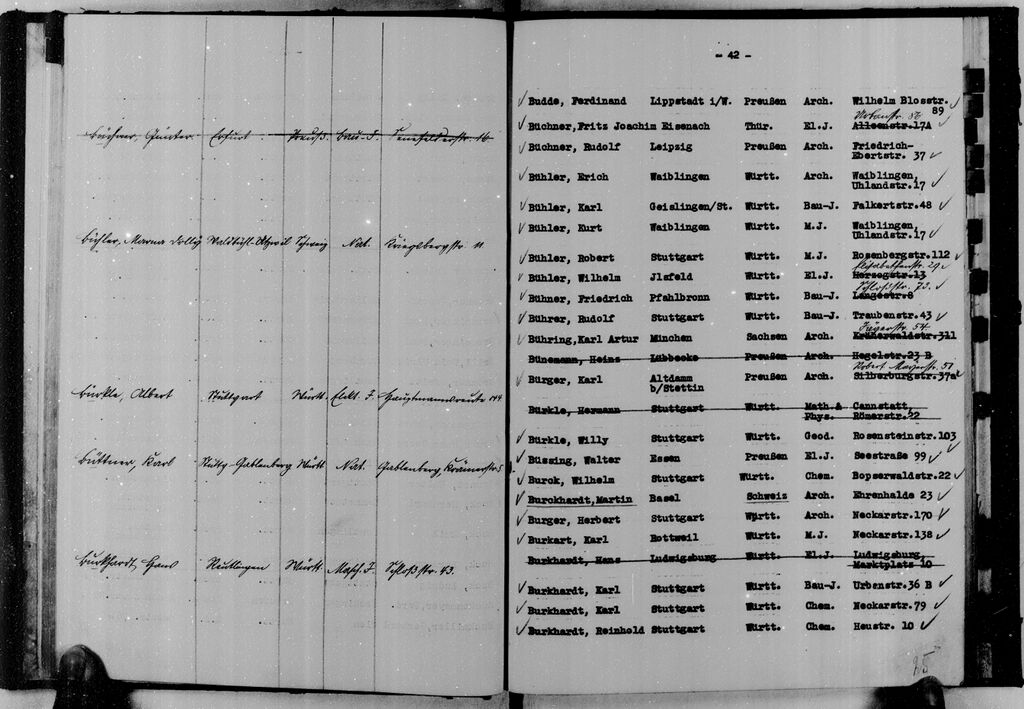 Büchner, Günter. Erfurt Preuß. Bau-J. Sennefelderstr. 16
Bühler, Marna Dolly Waldbühl-Uzwil Schweiz Nat. Kriegsbergstr. 11
Bürkle, Albert Stuttgart Württ. Elekt. J. Hauptmannsreute 144
Büttner, Karl Stuttg-Gablenberg Württ. Nat. Gablenberg, Krämerstr. 5
Burkhardt, Hans Reutlingen Württ. Masch. J. Schloßstr. 43.
- 42 -
Budde, Ferdinand Lippstadt i/W. Preußen Arch. Wilhelm Blosstr.
89
Büchner,Fritz Joachim Eisenach Thür. El.J. Alleenstr.17A
Büchner, Rudolf Leipzig Preußen Arch. Friedrich-
Ebertstr. 37
Bühler, Erich Waiblingen Württ. Arch. Waiblingen,
Uhlandstr.17
Bühler, Karl Geislingen/St. Württ. Bau-J. Falkertstr.48
Bühler, Kurt Waiblingen Württ. M.J. Waiblingen,
Uhlandstr.17
Bühler, Robert Stuttgart Württ. M.J. Rosenbergstr.112
Elisabethenstr. 29.
Bühler, Wilhelm Jlsfeld Württ. El.J. Herzogstr.13
Schloßstr. 73.
Bühner, Friedrich Pfahlbronn Württ. Bau-J. Langestr.8
Bührer, Rudolf Stuttgart Württ. Bau-J. Traubenstr.43
Jägerstr. 54
Bühring,Karl Artur München Sachsen Arch. Kräherwaldstr.311
Bünemann, Heinz Lübbecke Preußen Arch. Hegelstr.23 B
Robert Mayerstr. 51
Bürger, Karl Altdamm Preußen Arch. Silberburgstr.37a
b/Stettin
Bürkle, Hermann Stuttgart Württ. Math.& Cannstatt,
Phys. Römerstr.22
Bürkle, Willy Stuttgart Württ. Geod. Rosensteinstr.103
Büssing, Walter Essen Preußen El.J. Seestraße 99
Burck, Wilhelm Stuttgart Württ. Chem. Bopserwaldstr.22
Burckhardt,Martin Basel Schweiz Arch. Ehrenhalde 23
Burger, Herbert Stuttgart Württ. Arch. Neckarstr.170
Burkart, Karl Rottweil Württ. M.J. Neckarstr.138
Burkhardt, Hans Ludwigsburg Württ. El.J. Ludwigsburg,
Marktplatz 10
Burkhardt, Karl Stuttgart Württ. Bau-J. Urbenstr.36 B
Burkhardt, Karl Stuttgart Württ. Chem. Neckarstr.79
Burkhardt, Reinhold Stuttgart Württ. Chem. Heustr. 10
25